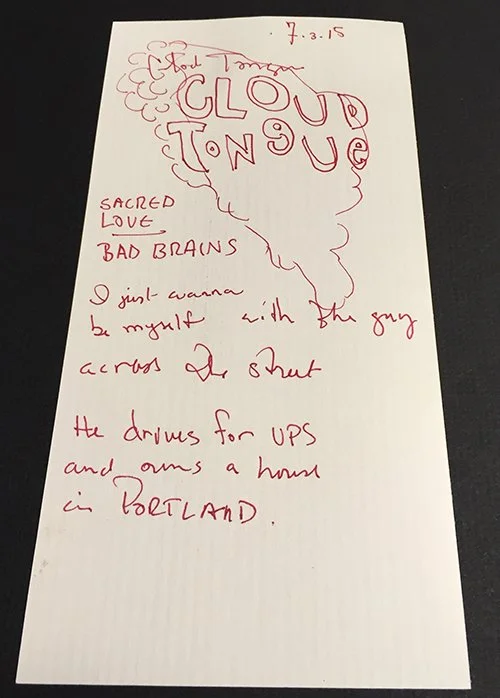 7.3.15
Cloud Tongue
CLOUD
TONGUE
SACRED
LOVE
BAD BRAINS
I just wanna
be myself with the guy
across the street
He drives for UPS
and owns a house
in PORTLAND.